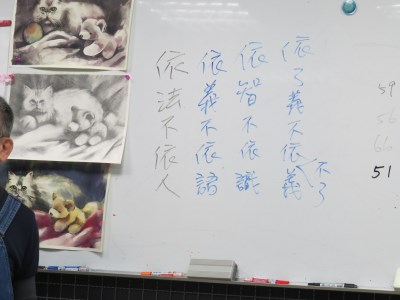 依法不依人
依義不依語
依智不依識
依了義不依不了義
59
56
66
51